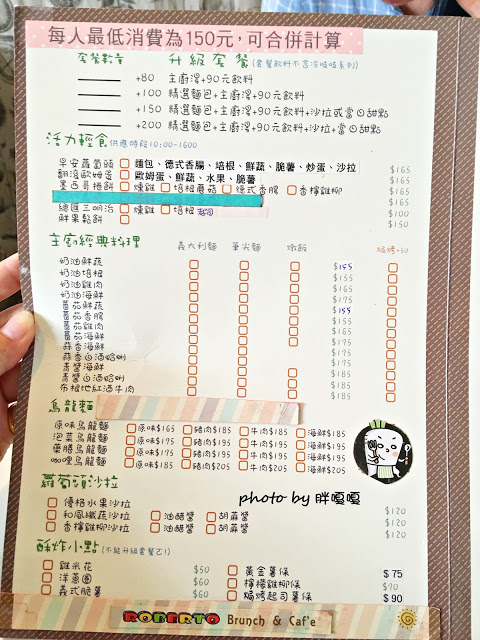 每人最低消費為150元,可合併計算
套餐數量 升級套餐(套餐飲料不含冷吱吱系列)
+80 主廚湯+90元飲料
+100 精選麵包+主廚湯+90元飲料
+150 精選麵包+主廚湯+90元飲料+沙拉或當日甜點
+200 精選麵包+主廚湯+90元飲料+沙拉+當日甜點
活力輕食 供應時段10:00-1600
早安蘿蔔頭 麵包、德式香腸、培根、鮮蔬、脆薯、炒蛋、沙拉 $165
翻滾歐姆蛋 歐姆蛋、鮮蔬、水果、脆薯 $165
墨西哥捲餅 燻雞 培根蘑菇 德式香腸 香檸雞柳 $165
$165
總匯三明治 燻雞 培根 $100
鮮果鬆餅 $150
主廚經典料理 義大利麵 筆尖麵 燉飯 焗烤+50
奶油鮮蔬 $155
奶油培根 $155
奶油雞肉 $165
奶油海鮮 $175
蕃茄鮮蔬 $155
蕃茄香腸 $155
蕃茄雞肉 $165
蕃茄海鮮 $175
蒜香海鮮 $175
蒜香白酒蛤蜊 $175
青醬海鮮 $185
青醬白酒蛤蜊 $185
布根地紅酒牛肉 $185
烏龍麵
原味烏龍麵 原味$165 豬肉$185 牛肉$185 海鮮$185
泡菜烏龍麵 原味$175 豬肉$195 牛肉$195 海鮮$195
藥膳烏龍麵 原味$175 豬肉$195 牛肉$195 海鮮$195
咖哩烏龍麵 原味$185 豬肉$205 牛肉$205 海鮮$205
蘿蔔頭沙拉
優格水果沙拉 $120
和風纖蔬沙拉 油醋醬 胡蔴醬 $120
香檸雞柳沙拉 油醋醬 胡蔴醬 $120
photo by 胖嘎嘎
酥炸小點(不能升級套餐乙!)
雞米花 $50 黃金薯條 $75
洋蔥圈 $60 檸檬雞柳條 $90
義式脆薯 $60 焗烤起司薯條 $90
ROBERTO Brunch & Caf'e